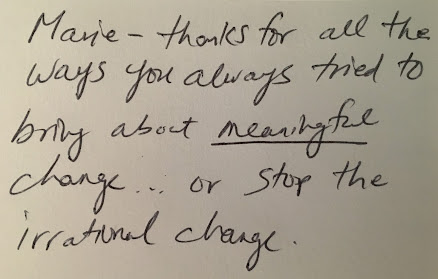 Marie - thanks for all the
ways you always tried to
bring about meaningful
change... or stop the
irrational change.